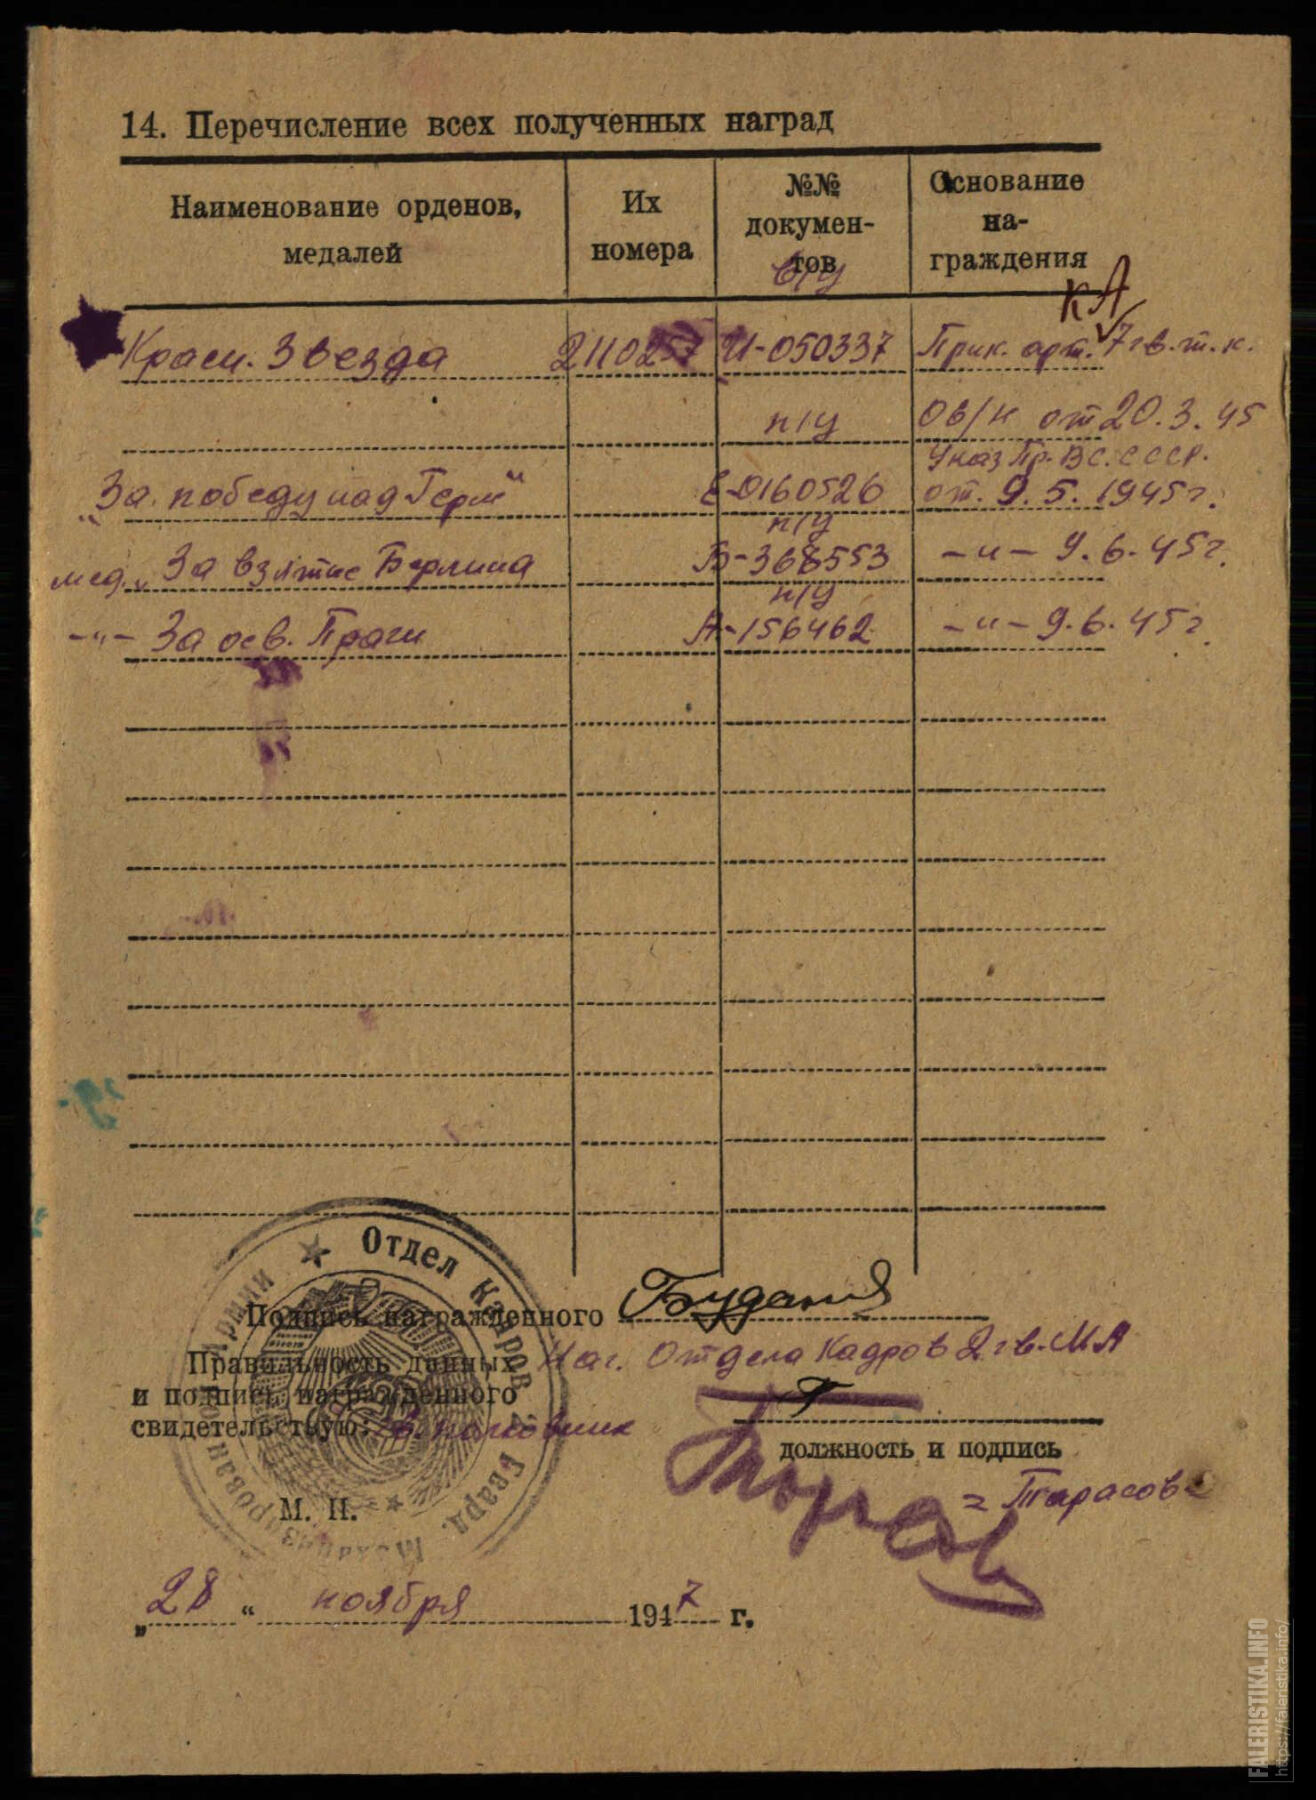 14. Перечисление всех полученных наград
Наименование орденов,
медалей
Их
номера
№№
докумен-
тов
Основание
на-
граждения
КА
Красн. Звезда 2110257 И-050337 Прик. арт. 7 гв. т. к.
п/у 06/н от 20.3.45
Указ Пр. ВС. СССР.
„За победу над Герм“ Е-0160526 от. 9.5.1945г.
п/у
мед. „За взятие Берлина Б-368553 -"- 9.6.45г.
п/у
-"- За осв. Праги А-156462 -"- 9.6.45г.
Отдел Кадров 2 Гвард. Механизирован Армии
Подпись награжденного
Правильность данных Нач. Отдела Кадров 2 гв. МА
и подпись награжденного
свидетельствую: полковник
должность и подпись
М. П.
= Тарасов =
„28“ ноября 1947 г.
FALERISTIKA.INFO
https://faleristika.info/